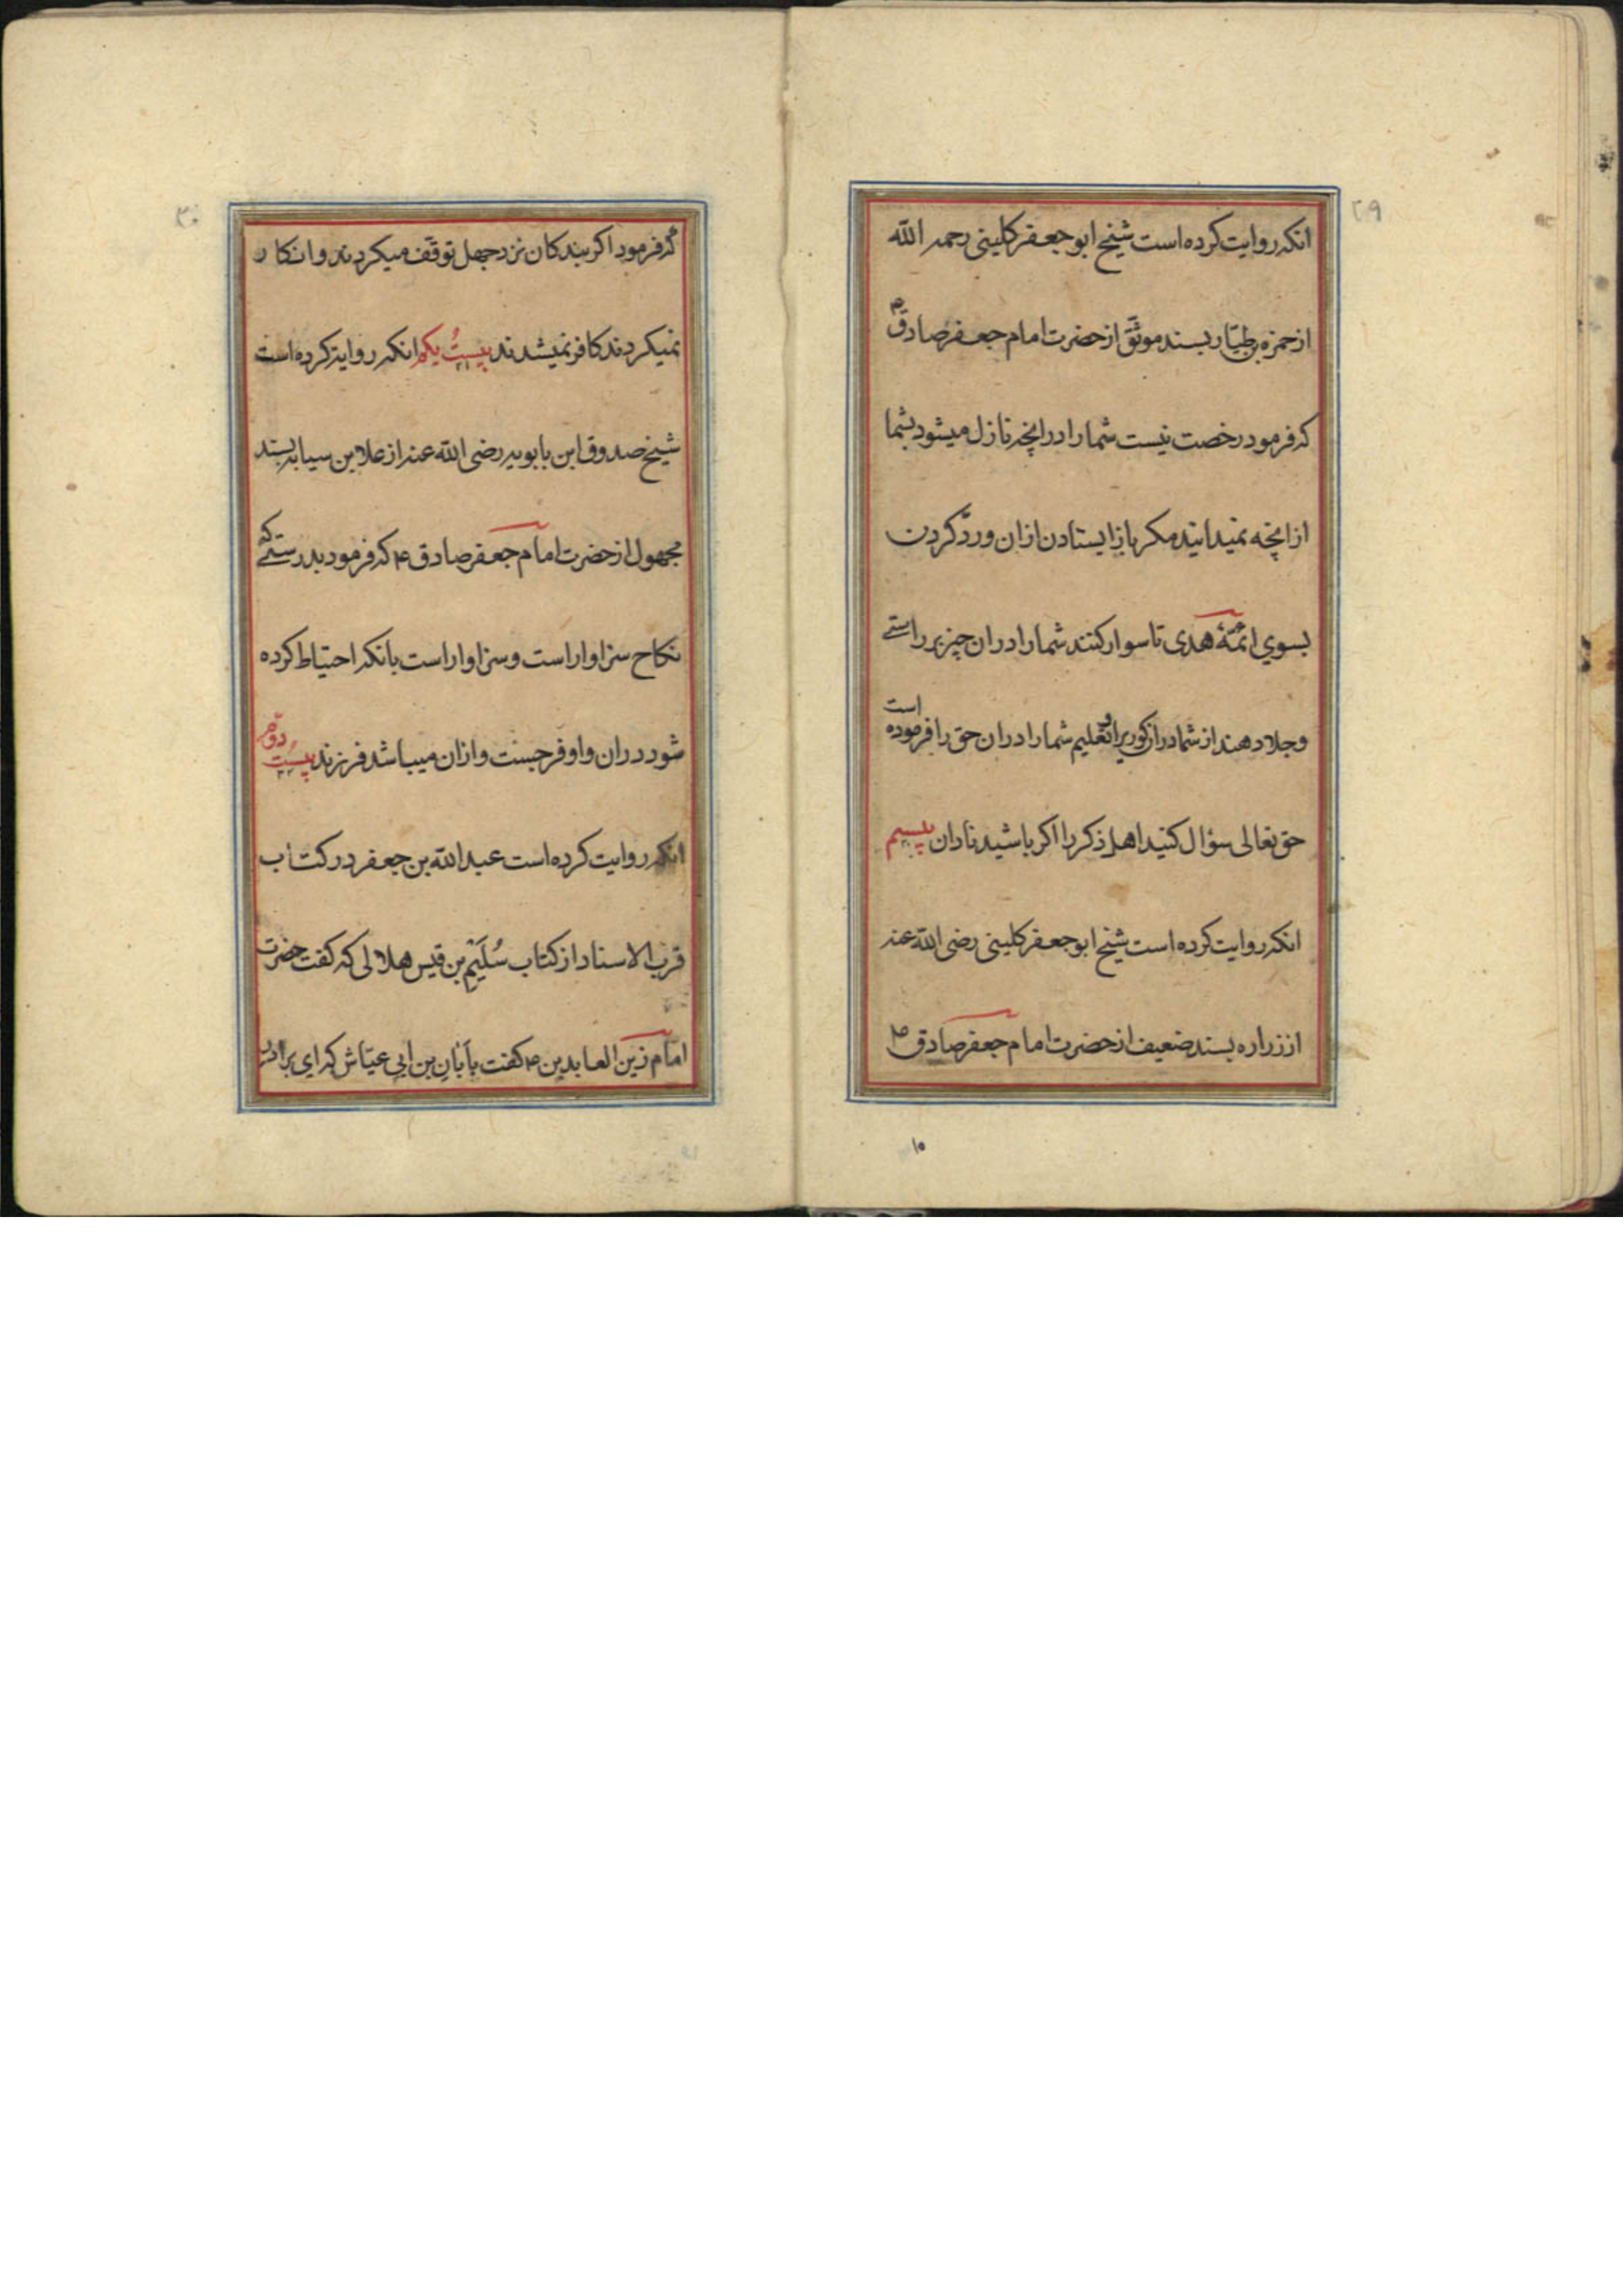 ۲۹
انکه روایت کرده است شیخ ابو جعفر کلینی رحمه الله
از حمزه بن طیّار بسند موثّق از حضرت امام جعفر صادق ع
که فرمود رخصت نیست شما را در انچه نازل میشود بشما
از انچه نمیدانید مکر باز ایستادن ازان وردّ کردن
بسوي ائمّهٔ هدی تا سوار کنند شما را دران چیز بر راستے
وجلا دهند از شما دران کوریرا و تعلیم شما را دران حق را فرموده است
حق تعالی سؤال کنید اهل ذکر را اکر باشید نادان بیسیم
۲۰
انکه روایت کرده است شیخ ابو جعفر کلینی رضی الله عنه
از زراره بسند ضعیف از حضرت امام جعفر صادق ع
۱۵
۳۰
که فرمود اکر بندکان نزد جهل توقّف میکردند و انکار
نمیکردند کافر نمیشدند بیستُ یکم انکه روایة کرده است
۲۱
شیخ صدوق ابن بابویه رضی الله عنه از علا بن سیابه بسند
مجهول از حضرت امام جعفر صادق ع که فرمود بدرستے که
نکاح سزاوار است وسزاوار است بانکه احتیاط کرده
شود دران واو فرجست وازان میباشد فرزند بیستُ دوّم
۲۲
انکه روایت کرده است عبد الله بن جعفر در کتاب
قرب الاسناد از کتاب سُلَیْم بن قیس هلالی که کفت حضرت
امام زین العابدین ع کفت بأبان بن ابی عیّاش که ای برادر